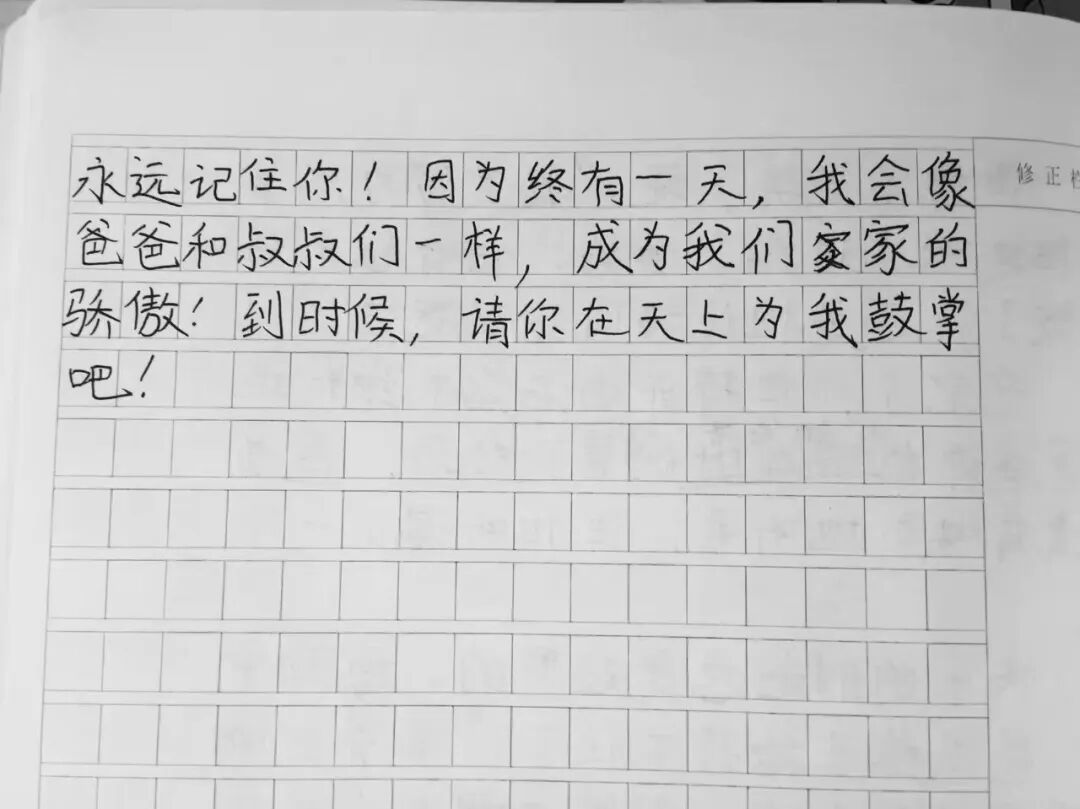 永远记住你！因为终有一天，我会像
修正栏
爸爸和叔叔们一样，成为我们家家的
骄傲！到时候，请你在天上为我鼓掌
吧！